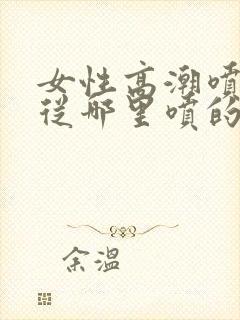 女性高潮噴
從哪里噴的
余溫